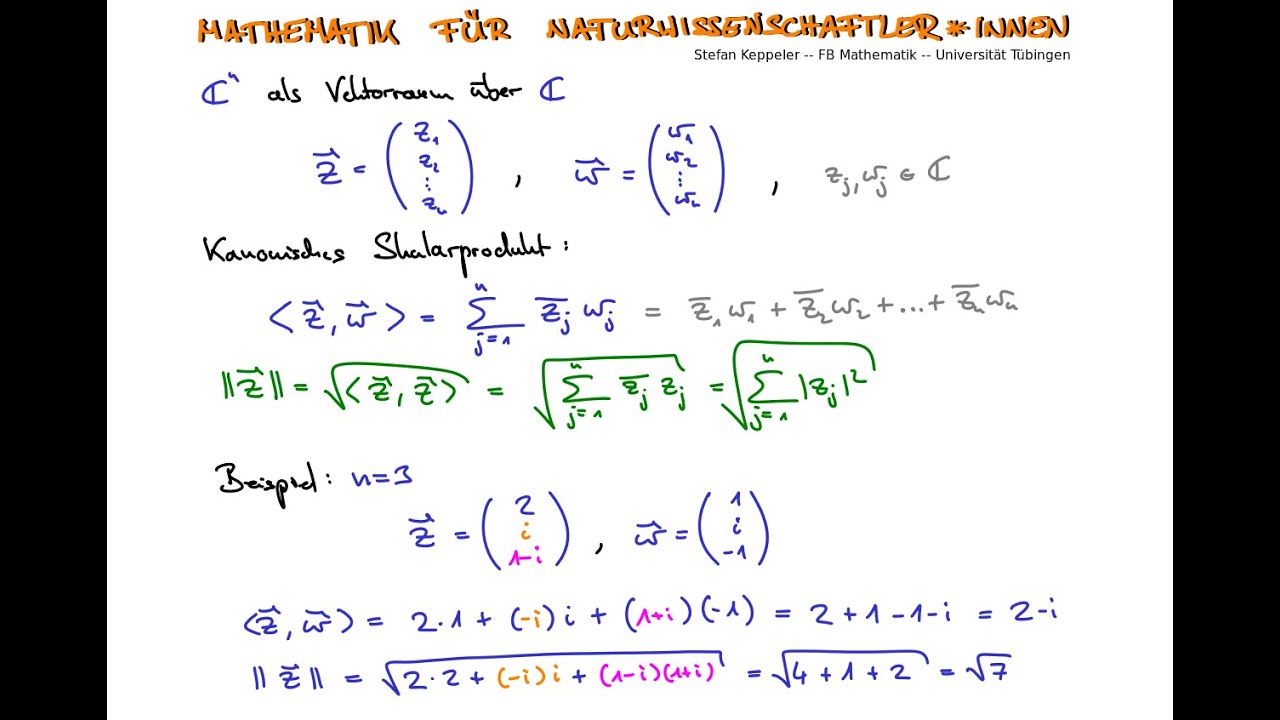 MATHEMATIK FÜR NATURWISSENSCHAFTLER*INNEN
Stefan Keppeler -- FB Mathematik -- Universität Tübingen
ℂⁿ als Vektorraum über ℂ
z⃗ = (z₁ z₂ ⋮ zₙ) , w⃗ = (w₁ w₂ ⋮ wₙ) , zⱼ, wⱼ ∈ ℂ
Kanonisches Skalarprodukt:
⟨z⃗, w⃗⟩ = ∑ⱼ₌₁ⁿ z̅ⱼ wⱼ = z̅₁w₁ + z̅₂w₂ + ... + z̅ₙwₙ
‖z⃗‖ = √⟨z⃗, z⃗⟩ = √(∑ⱼ₌₁ⁿ z̅ⱼ zⱼ) = √(∑ⱼ₌₁ⁿ |zⱼ|²)
Beispiel: n=3
z⃗ = (2 i 1-i) , w⃗ = (1 i -1)
⟨z⃗, w⃗⟩ = 2·1 + (-i)i + (1+i)(-1) = 2+1-1-i = 2-i
‖z⃗‖ = √(2·2 + (-i)i + (1-i)(1+i)) = √(4+1+2) = √7